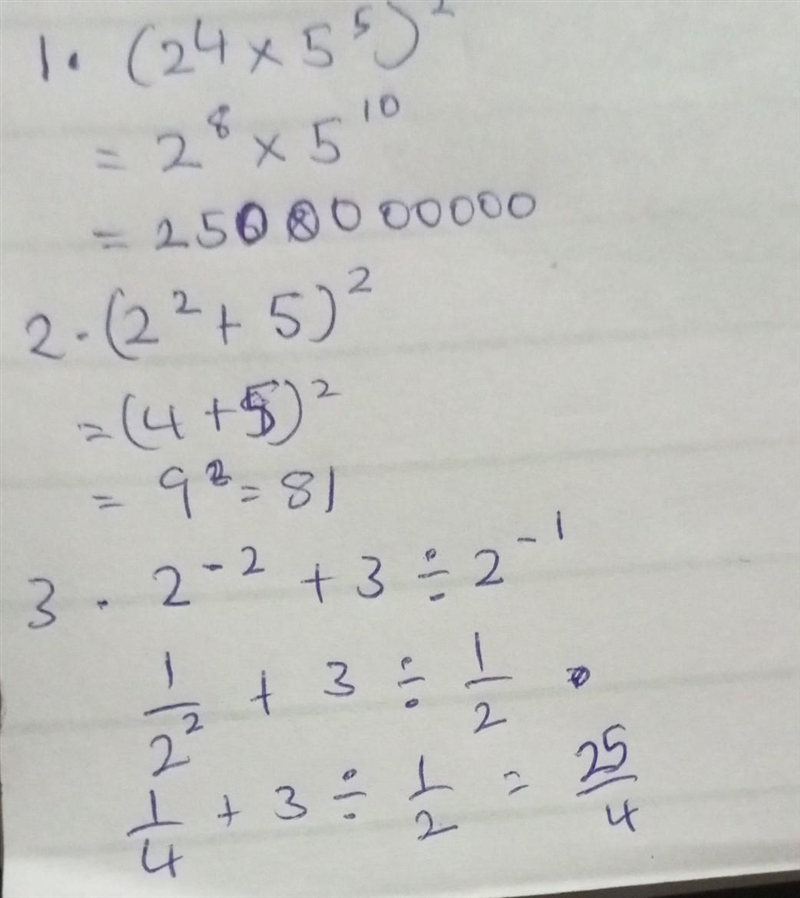 1. (2⁴ × 5⁵)²
= 2⁸ × 5¹⁰
= 2500000000
2. (2² + 5)²
= (4 + 5)²
= 9² = 81
3. 2⁻² + 3 ÷ 2⁻¹
1/2² + 3 ÷ 1/2
1/4 + 3 ÷ 1/2 = 25/4